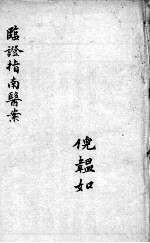 臨證指南醫案
倪韞如